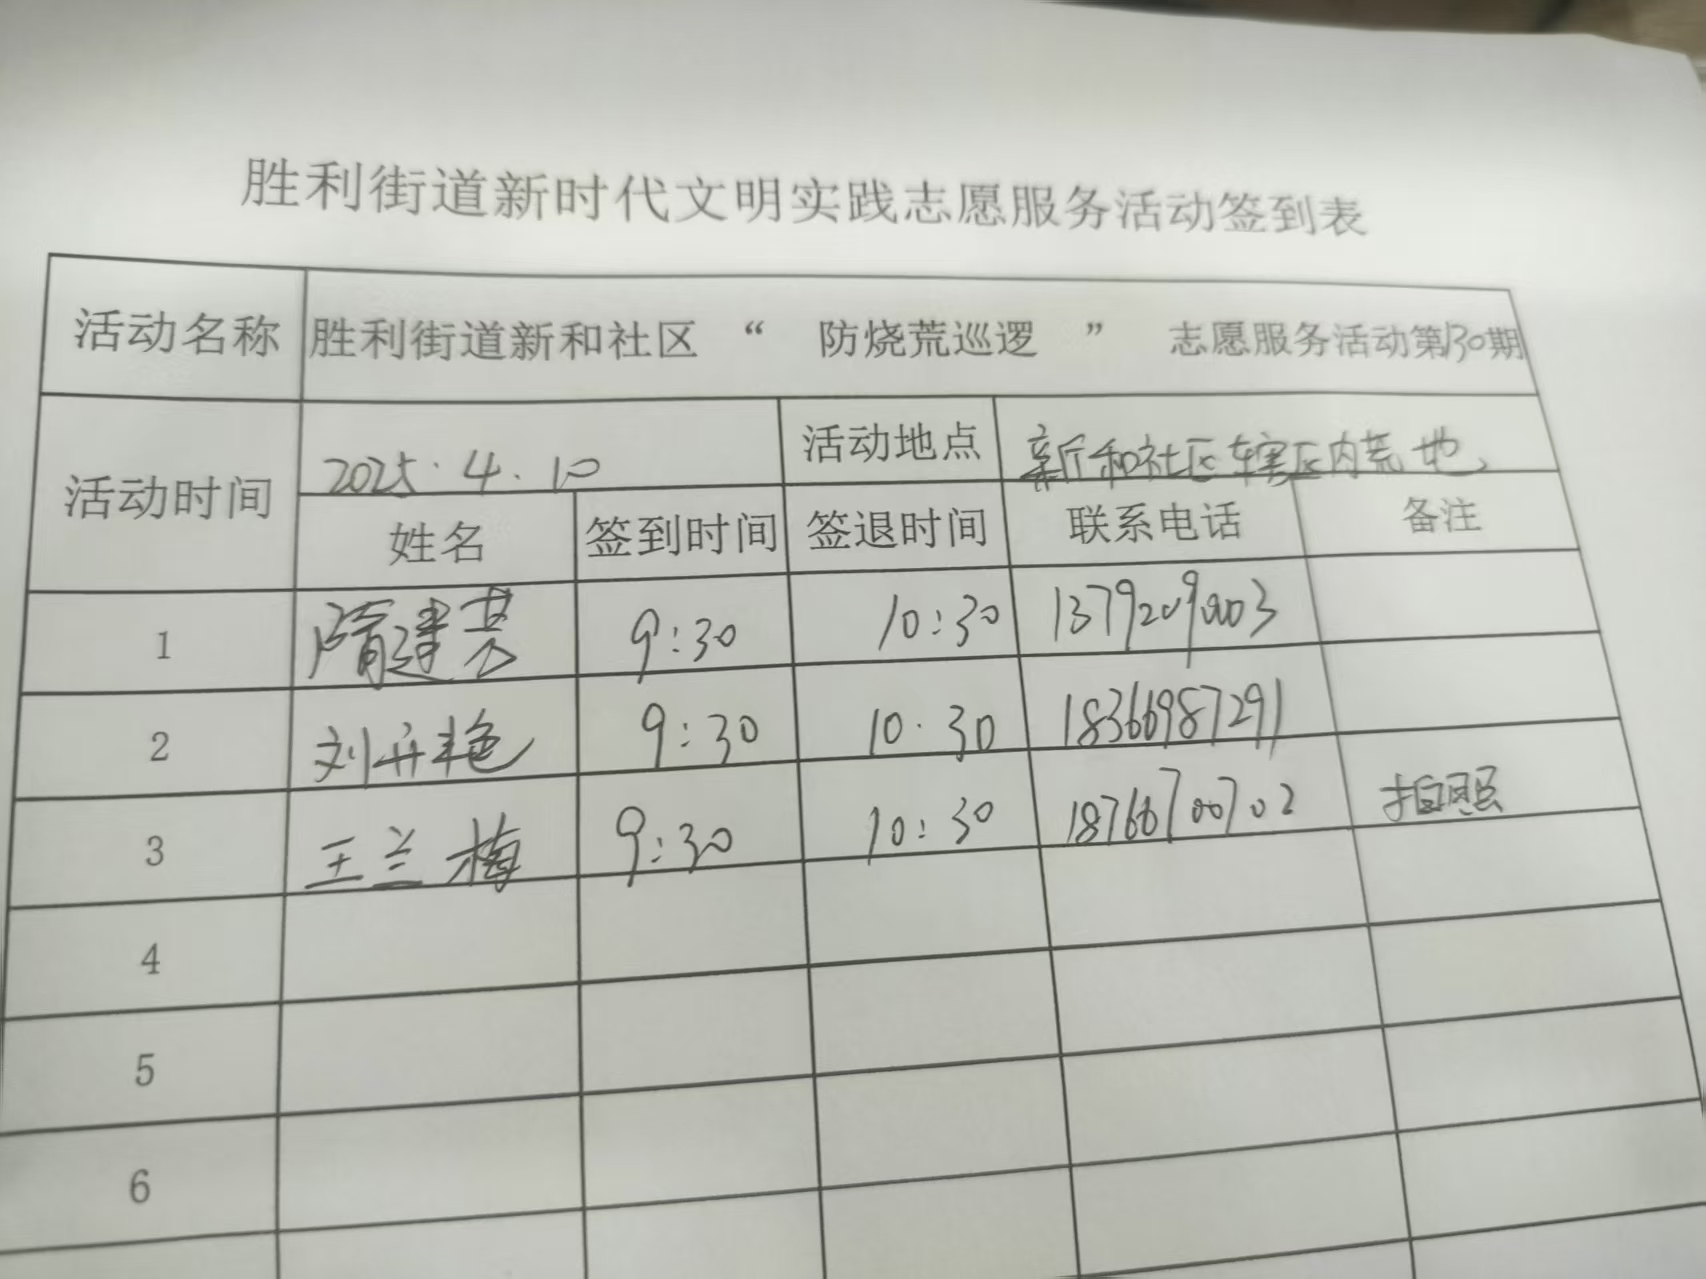 胜利街道新时代文明实践志愿服务活动签到表
活动名称 胜利街道新和社区 “ 防烧荒巡逻 ” 志愿服务活动第130期
活动时间 2025.4.10 活动地点 新和社区辖区内荒地
姓名 签到时间 签退时间 联系电话 备注
1 隋建英 9:30 10:30 1379209003
2 刘丹艳 9:30 10:30 18366987291
3 王兰梅 9:30 10:30 18766700702 拍照
4
5
6